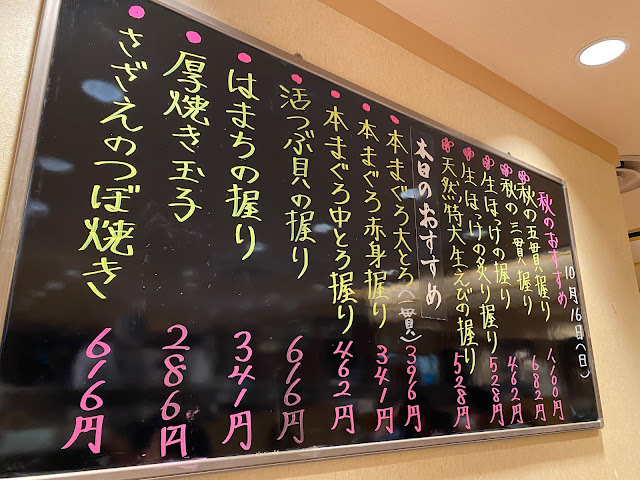 10月16日(日)
秋のおすすめ
秋の五貫握り 1,160円
秋の三貫握り 682円
生ほっけの握り 462円
生ほっけの炙り握り 528円
天然特大生えびの握り 528円
本日のおすすめ
本まぐろ大とろ(一貫) 396円
本まぐろ赤身握り 341円
本まぐろ中とろ握り 462円
活つぶ貝の握り 616円
はまちの握り 341円
厚焼き玉子 286円
さざえのつぼ焼き 616円